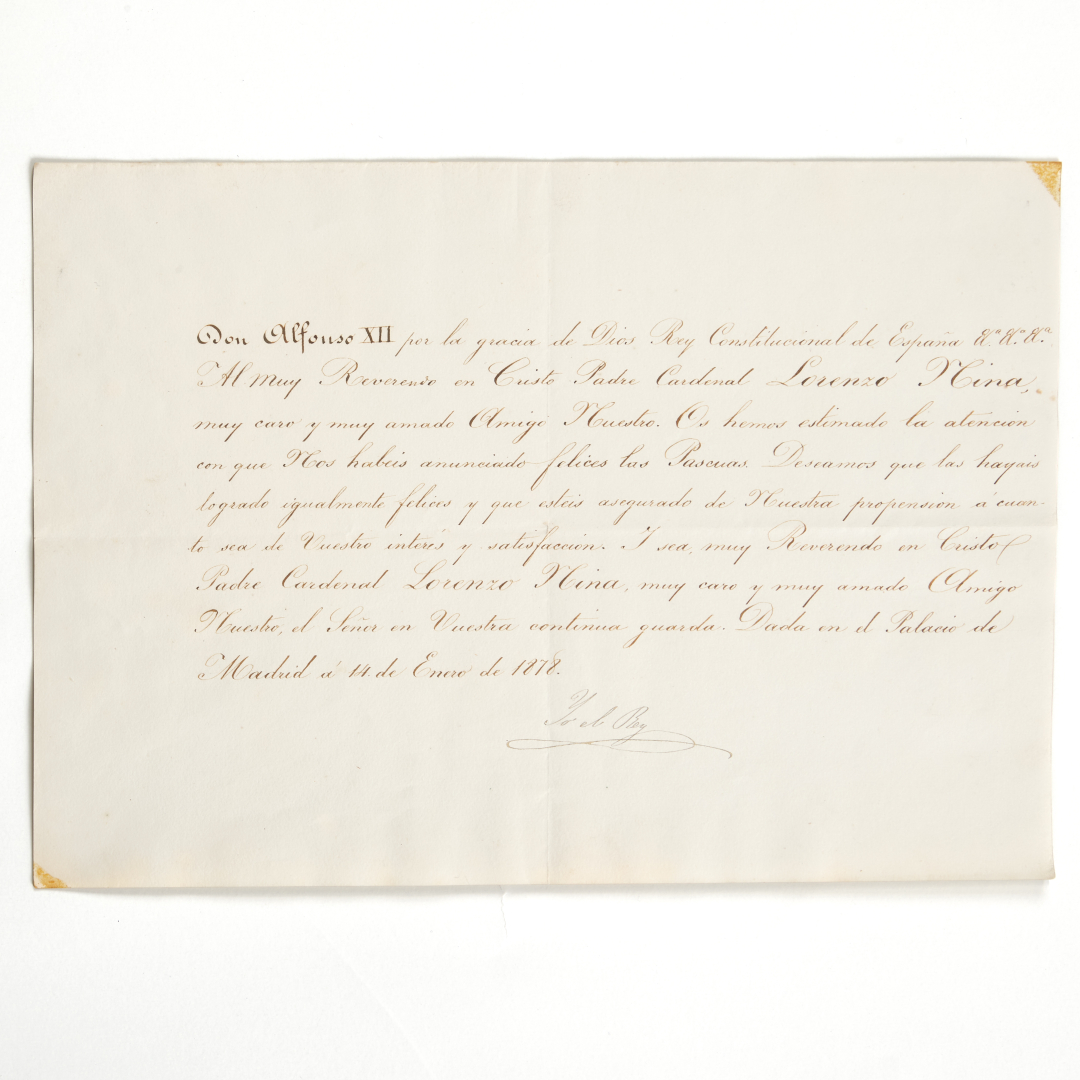 Don Alfonso XII por la gracia de Dios Rey Constitucional de España &.ª &.ª &.ª
Al muy Reverendo en Cristo Padre Cardenal Lorenzo Nina,
muy caro y muy amado Amigo Nuestro. Os hemos estimado la atencion
con que Nos habeis anunciado felices las Pascuas. Deseamos que las hayais
logrado igualmente felices y que esteis asegurado de Nuestra propension á cuan-
to sea de Vuestro interés y satisfaccion. I sea, muy Reverendo en Cristo
Padre Cardenal Lorenzo Nina, muy caro y muy amado Amigo
Nuestro, el Señor en Vuestra continua guarda. Dada en el Palacio de
Madrid á 14 de Enero de 1878.
Yo el Rey